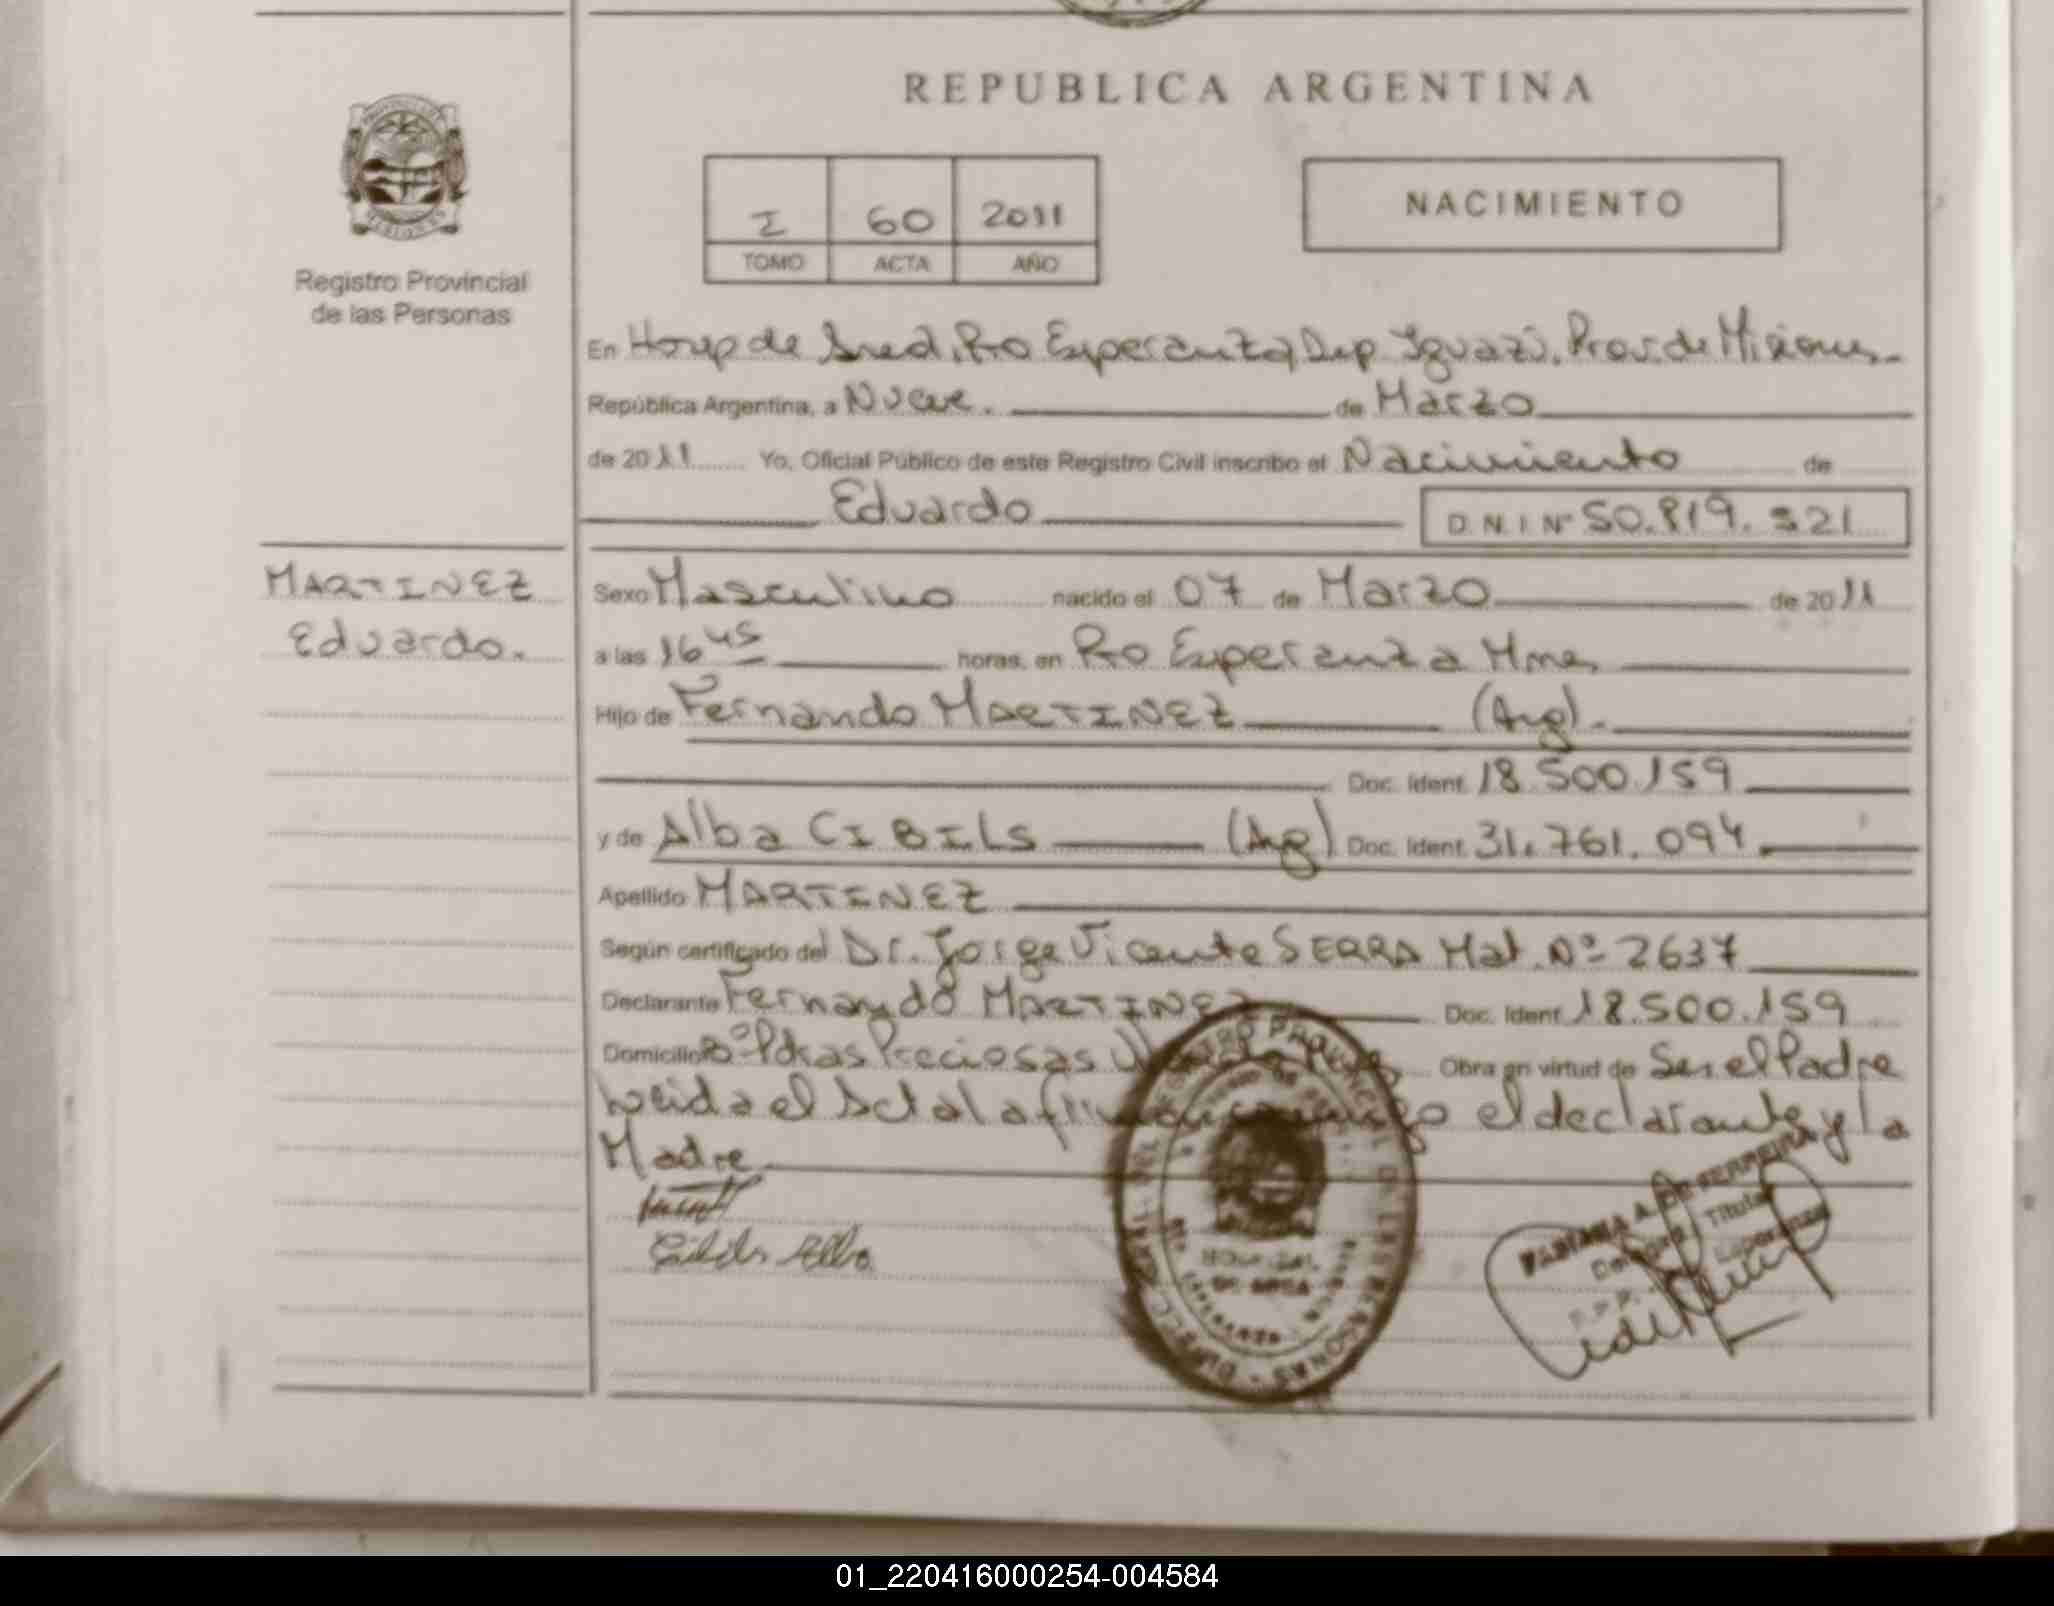 REPUBLICA ARGENTINA
Registro Provincial
de las Personas
I 60 2011
TOMO ACTA AÑO
NACIMIENTO
En Hosp de Area, Pto Esperanza, Dep Iguazú, Prov. de Misiones
República Argentina, a Nueve. de Marzo
de 2011 Yo, Oficial Público de este Registro Civil inscribo el Nacimiento de
Eduardo D.N.I Nº 50.819.321
MARTINEZ
Eduardo.
Sexo Masculino nacido el 07 de Marzo de 2011
a las 16 45 horas, en Pto Esperanza Mnes
Hijo de Fernando MARTINEZ (Arg).
Doc. Ident. 18.500.159
y de Alba CIBILS (Arg) Doc. Ident. 31.761.094
Apellido MARTINEZ
Según certificado del Dr. Jorge Vicente SERRA Mat. Nº 2637
Declarante Fernando MARTINEZ Doc. Ident. 18.500.159
Domicilio Bº Pdras Preciosas Obra en virtud de Ser el Padre
Leida el Acta la el declarante y la
Madre
Cibils Alba
HOSPITAL
DE AREA
FABIANA A. DE FERREIRA
Titular
Esperanza
01_220416000254-004584